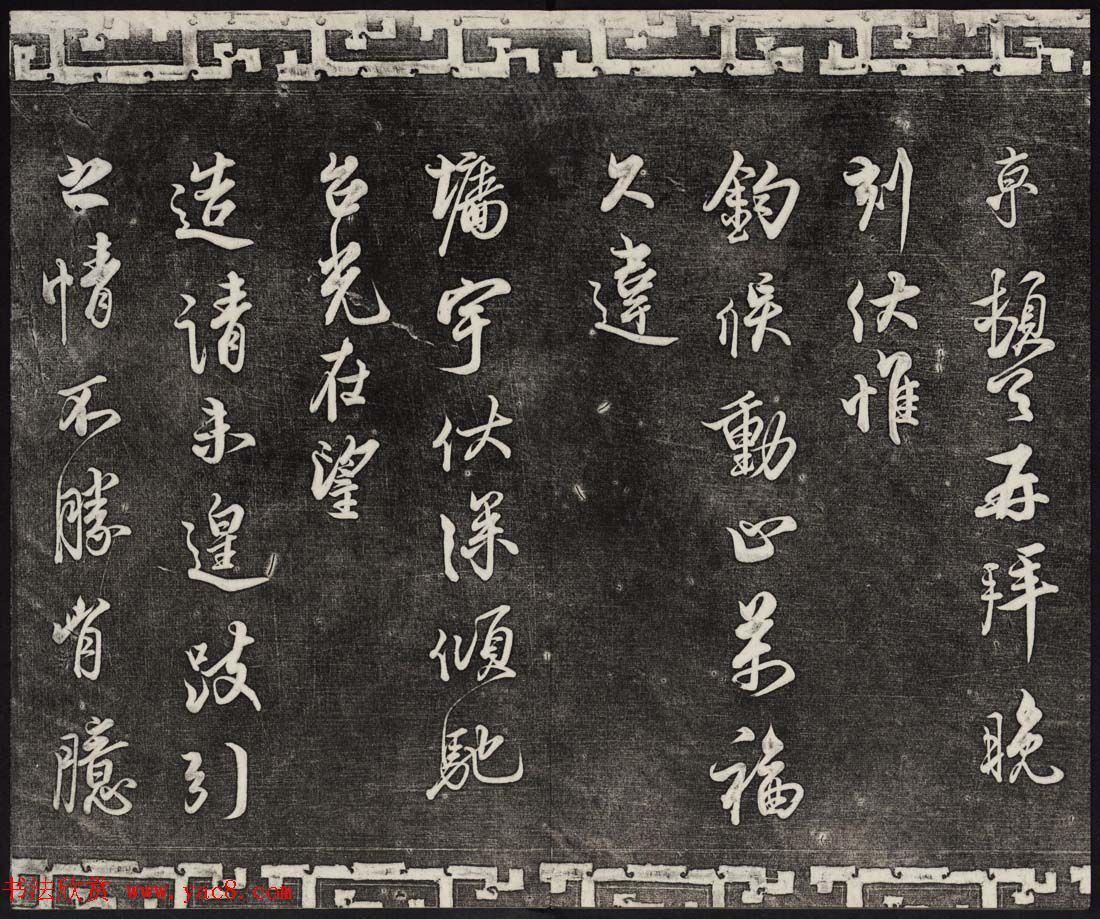 京頓首再拜晚
刻伏惟
鈞候動止萬福
久違
墉宇伏深傾馳
台光在望
造請未遑跂引
之情不勝胷臆
书法欣赏 www.yac8.com